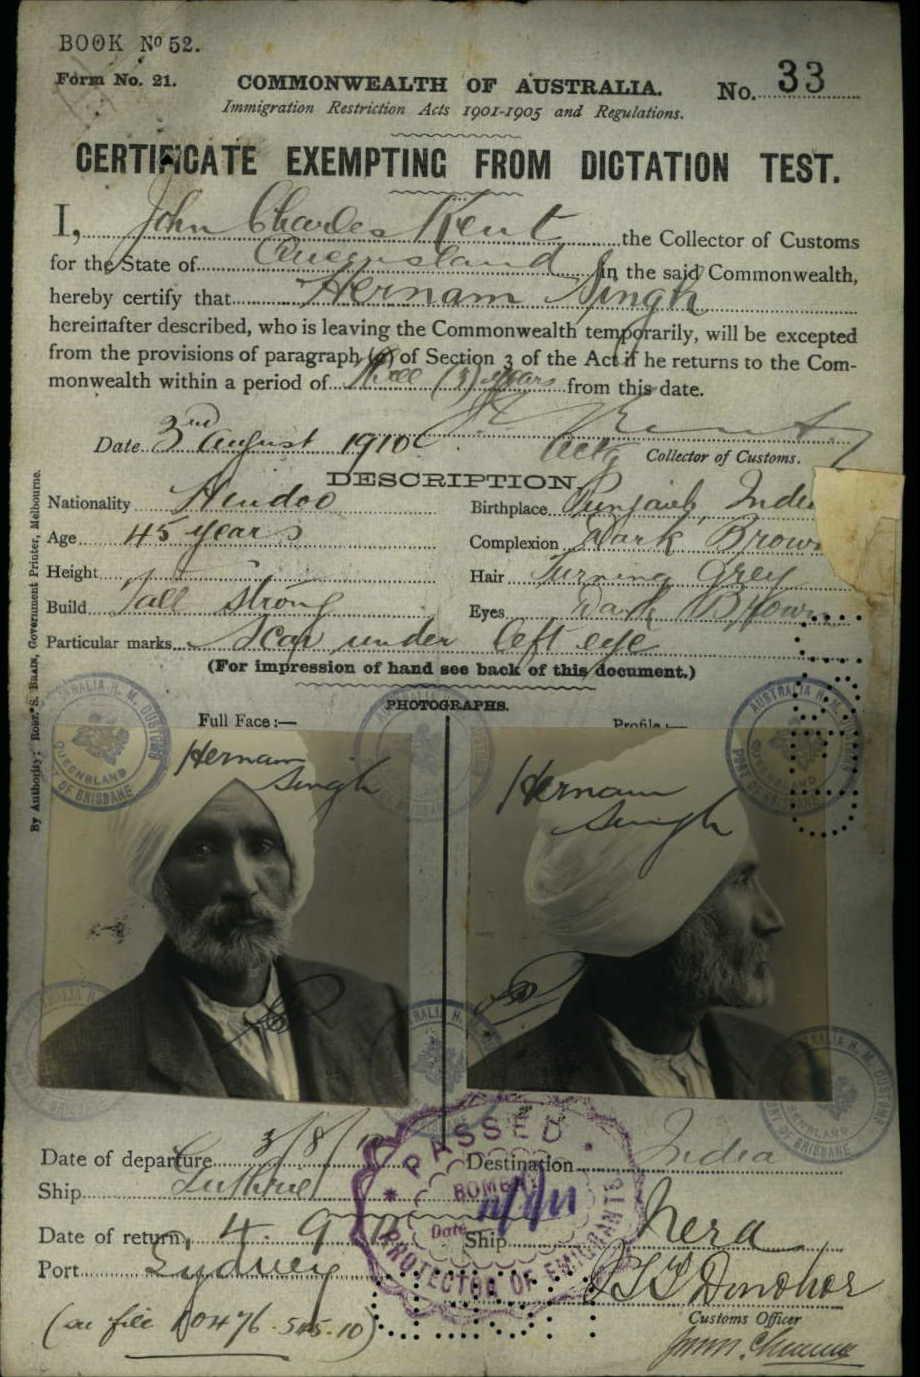 BOOK No 52.
Form No. 21.
COMMONWEALTH OF AUSTRALIA.
No. 33
Immigration Restriction Acts 1901-1905 and Regulations.
CERTIFICATE EXEMPTING FROM DICTATION TEST.
I, John Charles Kent the Collector of Customs
for the State of Queensland in the said Commonwealth,
hereby certify that Hernam Singh
hereinafter described, who is leaving the Commonwealth temporarily, will be excepted
from the provisions of paragraph of Section 3 of the Act if he returns to the Com-
monwealth within a period of Three (3) years from this date.
Date 3rd August 1910
Actg Collector of Customs.
DESCRIPTION
Nationality Hindoo
Birthplace Punjaub, India
Age 45 years
Complexion Dark Brown
Height
Hair Turning Grey
Build Tall strong
Eyes Dark Brown
Particular marks Scar under left eye
(For impression of hand see back of this document.)
PHOTOGRAPHS.
Full Face:—
Profile:—
By Authority: ROBT. S. BRAIN, Government Printer, Melbourne.
AUSTRALIA H. M. CUSTOMS
QUEENSLAND
PORT OF BRISBANE
Hernam
Singh
Hernam
Singh
Date of departure 3/8/10
Destination India
Ship Guthrie
Date of return 4. 9
Ship Nera
Port Sydney
PASSED
BOMBAY
Date
PROTECTOR OF EMIGRANTS
Customs Officer
(on file 10476. 5.5.10)